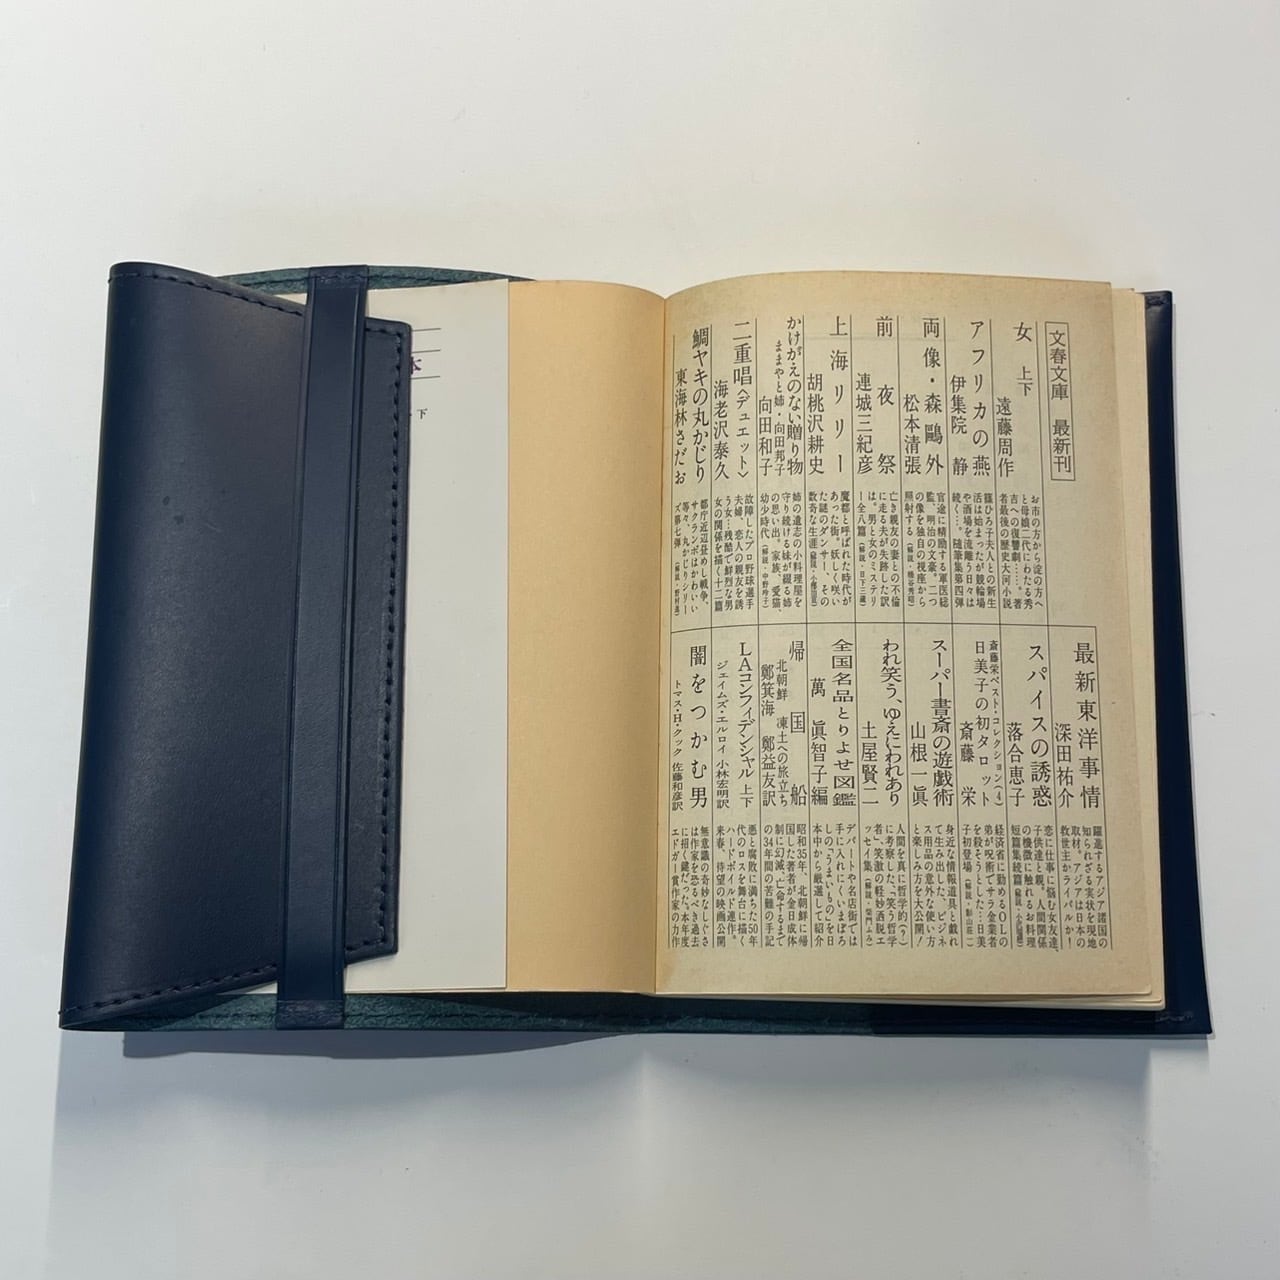 文春文庫 最新刊
女 上下
遠藤周作
お市の方から淀の方へ
と母娘二代にわたる秀
吉への復讐劇……。著
者最後の歴史大河小説
アフリカの燕
伊集院 静
篠ひろ子夫人との新生
活は始まったが競輪場
や酒場を流離う日々は
続く…。随筆集第四弾
両像・森鷗外
松本清張
官途に精励する軍医総
監、明治の文豪。二つ
の像を独自の視座から
照射する
前夜祭
連城三紀彦
亡き親友の妻との不倫
に走る夫が失跡した訳
は。男と女のミステリ
ー全八篇(解説・日下三蔵)
上海リリー
胡桃沢耕史
魔都と呼ばれた時代が
あった街。妖しく咲い
た謎のダンサー、その
数奇な生涯
かけがえのない贈り物
ままやと姉・向田邦子
向田和子
姉の遺志の小料理屋を
守り続ける妹が綴る姉
の思い出。家族、愛猫、
幼少時代(解説・中野玲子)
二重唱〈デュエット〉
海老沢泰久
故障したプロ野球選手
夫婦、恋人の親友を誘
う女…残酷で鮮烈な男
女の関係を描く十二篇
鯛ヤキの丸かじり
東海林さだお
都庁近辺昼めし戦争、
サクランボはかわいい
等々、丸かじりシリー
ズ第七弾
最新東洋事情
深田祐介
躍進するアジア諸国の
知られざる実状を現地
取材。アジアは日本の
救世主かライバルか!
スパイスの誘惑
落合恵子
恋に仕事に悩む女友達、
子供達と親。人間関係
の機微に触れるお料理
短篇集続篇
斎藤栄ベスト・コレクション(4)
日美子の初タロット
斎藤 栄
経済省に勤めるOLの
弟が呪術でサラ金業者
を殺そうとした…日美
子初登場(解説・影山荘一)
スーパー書斎の遊戯術
山根一眞
身近な情報道具と戯れ
て生み出した、ビジネ
ス用品の意外な使い方
と楽しみ方を大公開!
われ笑う、ゆえにわれあり
土屋賢二
人間を真に哲学的(?)
に考察した、「笑う哲学
者」、笑激の軽妙洒脱エ
ッセイ集(解説・柴門ふみ)
全国名品とりよせ図鑑
萬 眞智子編
デパートや名店街では
手に入れにくいまぼろ
しの「うまいもの」を日
本中から厳選して紹介
帰国船
北朝鮮 凍土への旅立ち
鄭箕海 鄭益友訳
昭和35年、北朝鮮に帰
国した著者が金日成体
制に幻滅、亡命するまで
の34年間の苦難の手記
LAコンフィデンシャル 上下
ジェイムズ・エルロイ 小林宏明訳
悪と腐敗に満ちた50年
代のロスを舞台に描く
ハードボイルド連作。
来春、待望の映画公開
闇をつかむ男
トマス・H・クック 佐藤和彦訳
無意識の奇妙なしぐさ
は作家を恐るべき過去
に招く鍵だった。本年度
エドガー賞作家の力作
本
・下